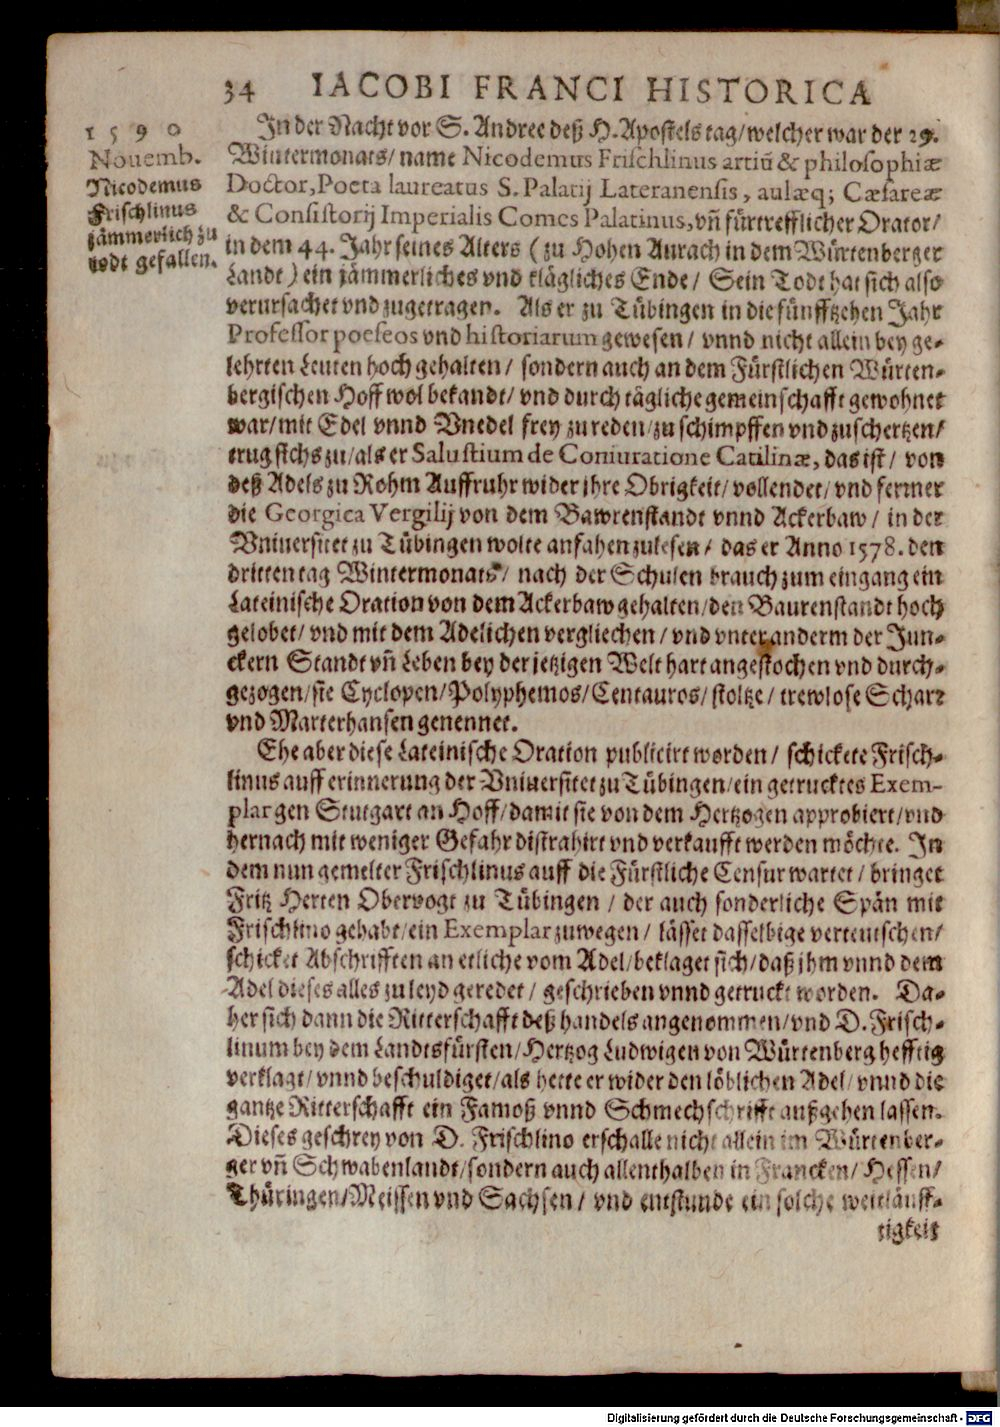 34 IACOBI FRANCI HISTORICA
1590
Nouemb.
Nicodemus
Frischlinus
jämmerlich zu
todt gefallen.
In der Nacht vor S. Andree deß H. Apostels tag/ welcher war der 29.
Wintermonats/ name Nicodemus Frischlinus artiū & philosophiæ
Doctor, Poeta laureatus S. Palatij Lateranensis, aulæq; Cæsareæ
& Consistorij Imperialis Comes Palatinus, vñ fürtrefflicher Orator/
in dem 44. Jahr seines Alters (zu Hohen Aurach in dem Würtenberger
Landt) ein jämmerliches vnd klägliches Ende/ Sein Todt hat sich also
verursachet vnd zugetragen. Als er zu Tübingen in die fünfftzehen Jahr
Professor poeseos vnd historiarum gewesen/ vnnd nicht allein bey ge-
lehrten Leuten hoch gehalten/ sondern auch an dem Fürstlichen Würten-
bergischen Hoff wol bekandt/ vnd durch tägliche gemeinschafft gewohnet
war/ mit Edel vnnd Vnedel frey zu reden/ zu schimpffen vnd zuschertzen/
trug sichs zu/ als er Salustium de Coniuratione Catilinæ, das ist/ von
deß Adels zu Rohm Auffruhr wider jhre Obrigkeit/ vollendet/ vnd ferner
die Georgica Vergilij von dem Bawrenstandt vnnd Ackerbaw/ in der
Vniuersitet zu Tübingen wolte anfahen zulesen/ das er Anno 1578. den
dritten tag Wintermonats/ nach der Schulen brauch zum eingang ein
Lateinische Oration von dem Ackerbaw gehalten/ den Baurenstandt hoch
gelobet/ vnd mit dem Adelichen vergliechen/ vnd vnter anderm der Jun-
ckern Standt vñ Leben bey der jetzigen Welt hart angestochen vnd durch-
gezogen/ sie Cyclopen/ Polyphemos/ Centauros/ stoltze/ trewlose Scharz
vnd Marterhansen genennet.
Ehe aber diese Lateinische Oration publicirt worden/ schickete Frisch-
linus auff erinnerung der Vniuersitet zu Tübingen/ ein getrucktes Exem-
plar gen Stutgart an Hoff/ damit sie von dem Hertzogen approbiert/ vnd
hernach mit weniger Gefahr distrahirt vnd verkaufft werden möchte. In
dem nun gemelter Frischlinus auff die Fürstliche Censur wartet/ bringet
Fritz Herten Obervogt zu Tübingen/ der auch sonderliche Spän mit
Frischlino gehabt/ ein Exemplar zuwegen/ lässet dasselbige verteutschen/
schicket Abschrifften an etliche vom Adel/ beklaget sich/ daß jhm vnnd dem
Adel dieses alles zu leyd geredet/ geschrieben vnnd getruckt worden. Da-
her sich dann die Ritterschafft deß handels angenommen/ vnd D. Frisch-
linum bey dem Landtsfürsten/ Hertzog Ludwigen von Würtenberg hefftig
verklagt/ vnnd beschuldiget/ als hette er wider den löblichen Adel/ vnnd die
gantze Ritterschafft ein Famoß vnnd Schmechschrifft außgehen lassen.
Dieses geschrey von D. Frischlino erschalle nicht allein im Würtenber-
ger vñ Schwabenlandt/ sondern auch allenthalben in Francken/ Hessen/
Thüringen/ Meissen vnd Sachsen/ vnd entstunde ein solche weitläuff-
tigkeit
Digitalisierung gefördert durch die Deutsche Forschungsgemeinschaft - DFG